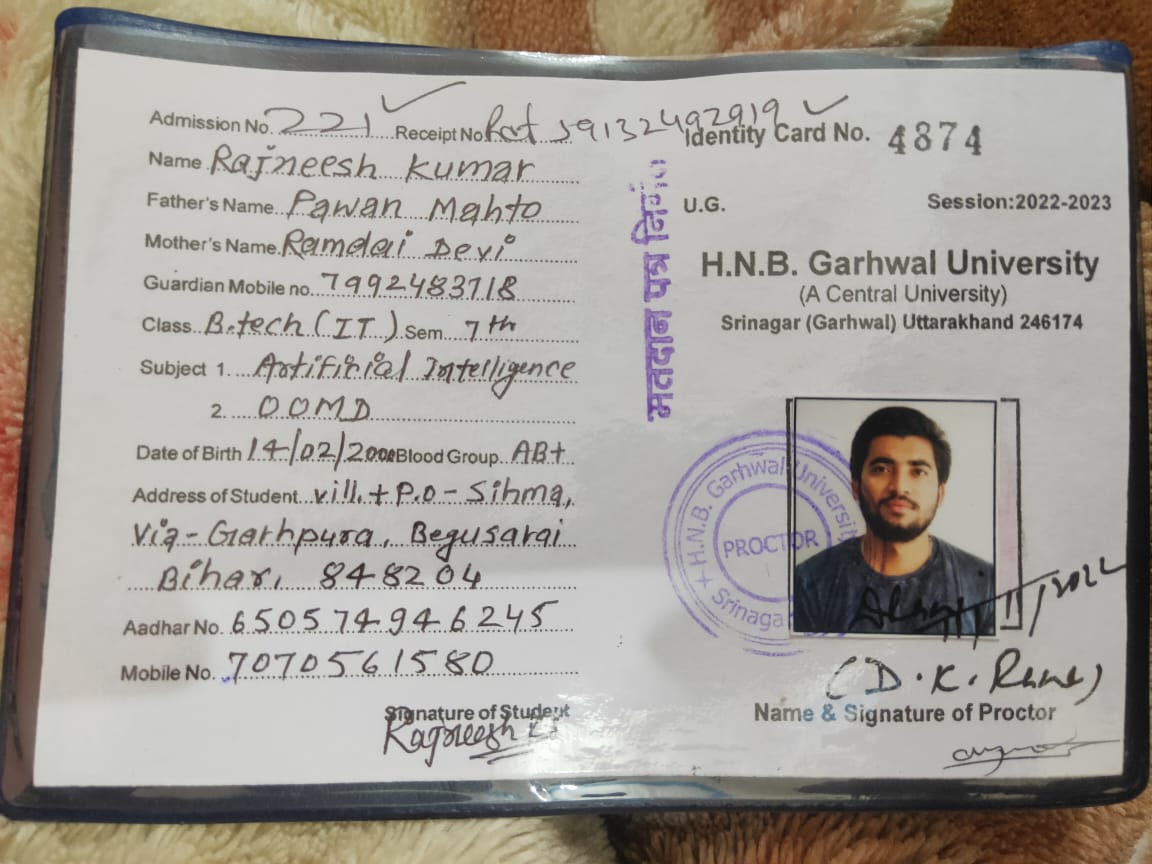 Admission No. 221 Receipt No. Rct 59132492919
Identity Card No. 4874
Name Rajneesh Kumar
Father's Name Pawan Mahto
Mother's Name Ramdai Devi
Guardian Mobile no. 7992483718
Class B.tech (IT) Sem. 7th
Subject 1. Artificial Intelligence
2. OOMD
Date of Birth 14/02/2000 Blood Group AB+
Address of Student vill. + P.O - Sihma,
Via - Garhpura, Begusarai
Bihar, 848204
Aadhar No. 650574946245
Mobile No. 7070561580
Signature of Student
Rajneesh
मतदान पत्र
U.G. Session:2022-2023
H.N.B. Garhwal University
(A Central University)
Srinagar (Garhwal) Uttarakhand 246174
H.N.B. Garhwal University
PROCTOR
Srinaga
(D.K. Rana)
Name & Signature of Proctor